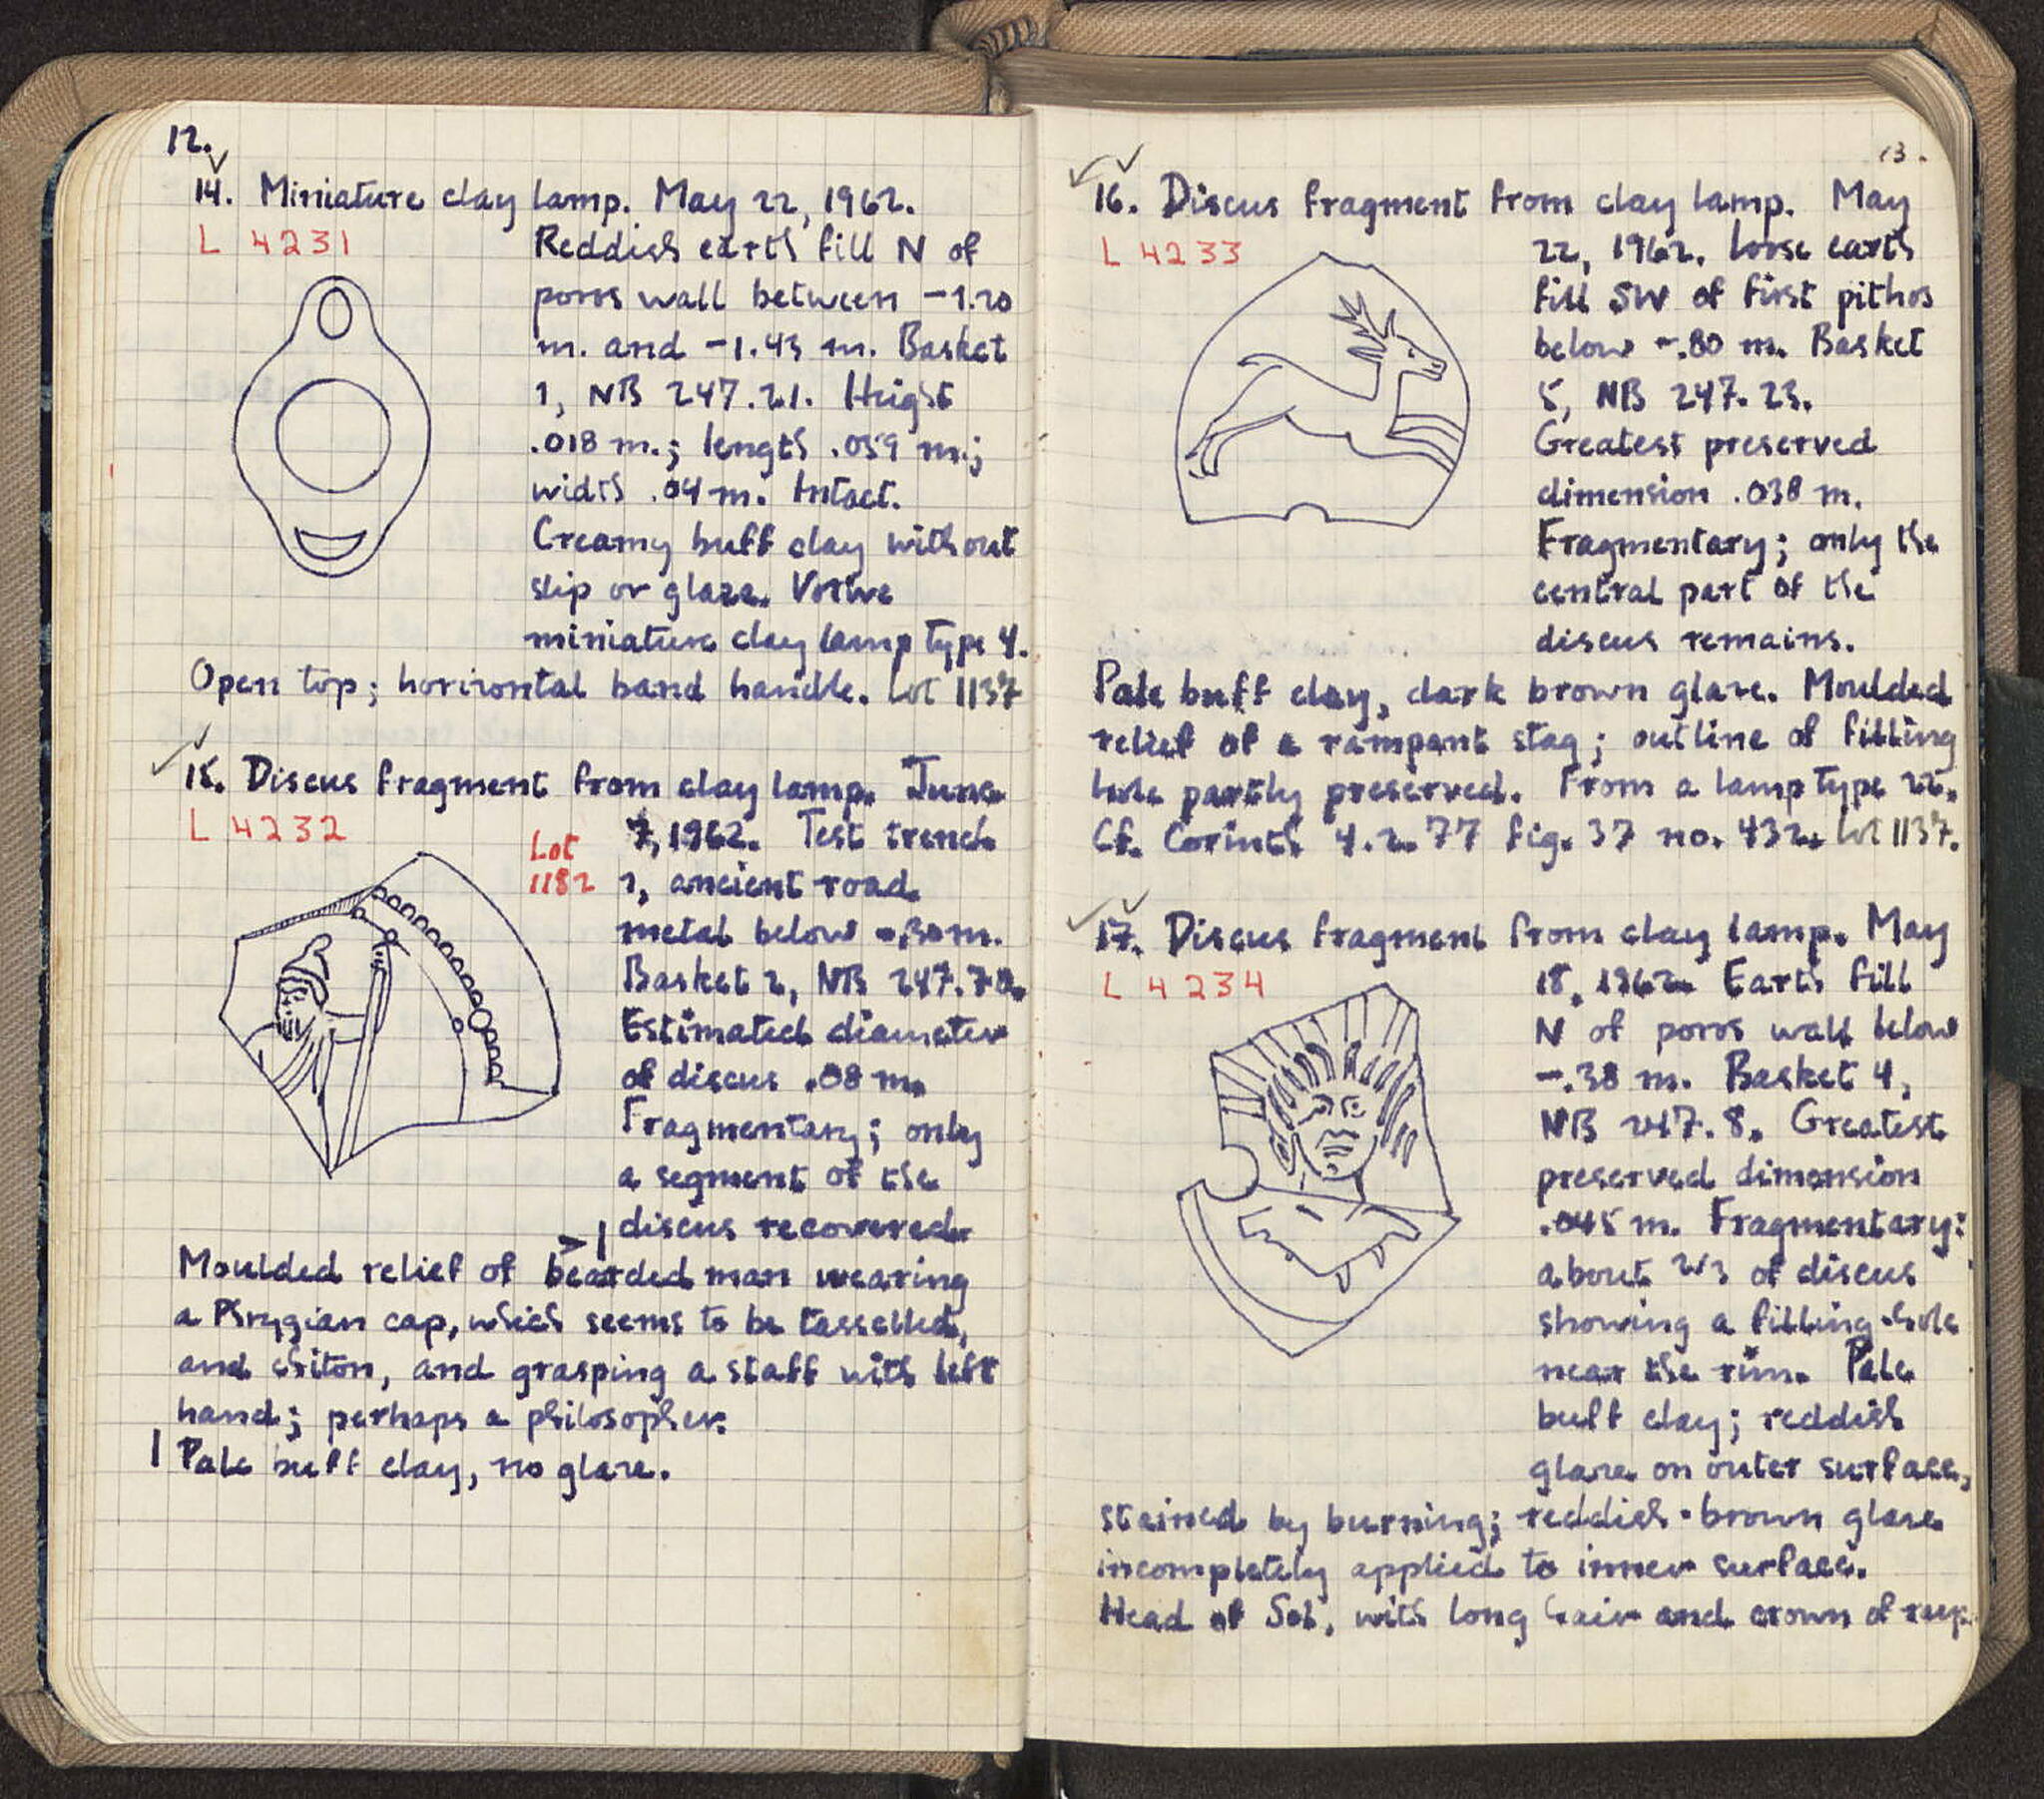 12.
14. Miniature clay lamp. May 22, 1962.
L 4231
Reddish earth fill N of
poros wall between -1.20
m. and -1.43 m. Basket
1, NB 247.21. Height
.018 m.; length .059 m.;
width .04 m. Intact.
Creamy buff clay without
slip or glaze. Votive
miniature clay lamp type 4.
Open top; horizontal band handle. Lot 1137
15. Discus fragment from clay lamp. June
L 4232
Lot
1182
7, 1962. Test trench
1, ancient road
metal below -.30 m.
Basket 2, NB 247.
Estimated diameter
of discus .08 m.
Fragmentary; only
a segment of the
discus recovered.
Moulded relief of bearded man wearing
a Phrygian cap, which seems to be tasselled,
and chiton, and grasping a staff with left
hand; perhaps a philosopher.
Pale buff clay, no glaze.
13.
16. Discus fragment from clay lamp. May
L 4233
22, 1962. Loose earth
fill SW of first pithos
below -.80 m. Basket
5, NB 247.23.
Greatest preserved
dimension .038 m.
Fragmentary; only the
central part of the
discus remains.
Pale buff clay, dark brown glaze. Moulded
relief of a rampant stag; outline of filling
hole partly preserved. From a lamp type 22.
Cf. Corinth 4.2.77 fig. 37 no. 432. Lot 1137.
17. Discus fragment from clay lamp. May
L 4234
18, 1962. Earth fill
N of poros wall below
-.38 m. Basket 4,
NB 247.8. Greatest
preserved dimension
.045 m. Fragmentary:
about 2/3 of discus
showing a filling-hole
near the rim. Pale
buff clay; reddish
glaze on outer surface,
stained by burning; reddish-brown glaze
incompletely applied to inner surface.
Head of Sol, with long hair and crown of rays.